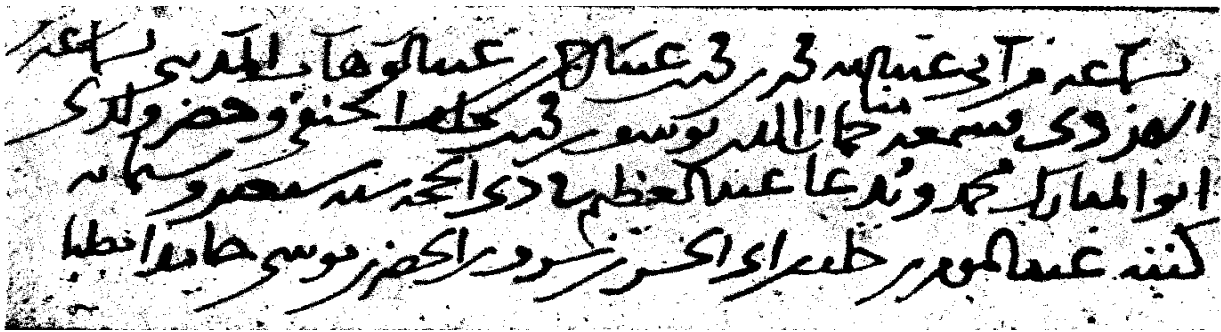 بسماعه من ابي عبد الله محمد بن محمد بن عبد بن عبد الوهاب بسماعه من
الهروي فسمعه جمال الدين يوسف بن محمد بن الحنفي وحضر ولدي
ابو المبارك محمد ويدعا عبد العظيم في ذي الحجة سنة وستمائة
كتبه عبد المومن بن خلف بن ابي الحسن بن شرف بن الخضر بن موسى حامدا